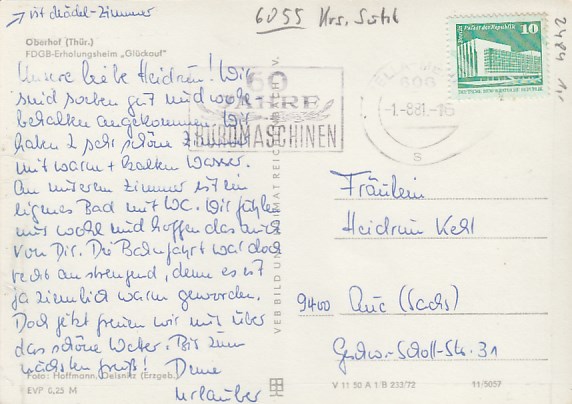 → ist Mädel-Zimmer
6055 Krs. Suhl
2484
Oberhof (Thür.)
FDGB-Erholungsheim „Glückauf"
Unsere liebe Heidrun! Wir
sind soeben gut und wohl
behalten angekommen. Wir
haben 2 sehr schöne Zimmer
mit warm + kalten Wasser.
An unserem Zimmer ist ein
eigenes Bad mit WC. Wir fühlen
uns wohl und hoffen das auch
von Dir. Die Bahnfahrt war doch
recht anstrengend, denn es ist
ja ziemlich warm geworden.
Doch jetzt freuen wir uns über
das schöne Wetter. Bis zum
nächsten Gruß! Deine
Urlauber
Foto: Hoffmann, Oelsnitz (Erzgeb.)
EVP 0,25 M
VEB BILD UND HEIMAT REICHENBACH i. V.
60
JAHRE
BÜROMASCHINEN
-1.-8.81.-16
s
10
Palast der Republik
DEUTSCHE DEMOKRATISCHE REPUBLIK
Fräulein
Heidrun Kehl
9400 Aue (Sachs)
Geschw.-Scholl-Str. 31
V 11 50 A 1/B 233/72
11/5057